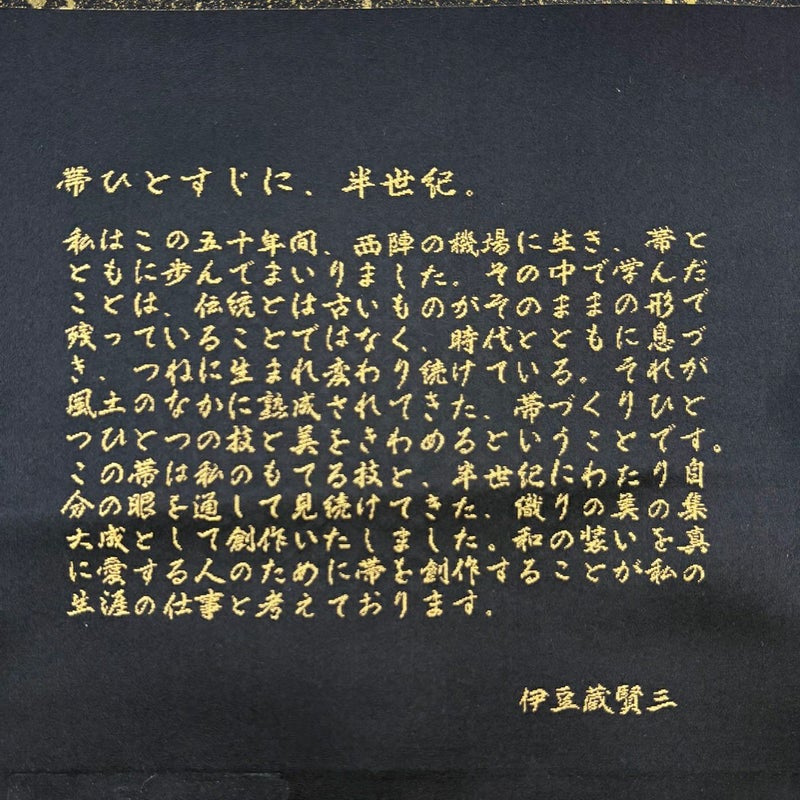 帯ひとすじに、半世紀。
私はこの五十年間、西陣の機場に生き、帯と
ともに歩んでまいりました。その中で学んだ
ことは、伝統とは古いものがそのままの形で
残っていることではなく、時代とともに息づ
き、つねに生まれ変わり続けている。それが
風土のなかに熟成されてきた、帯づくりひと
つひとつの技と美をきわめるということです。
この帯は私のもてる技と、半世紀にわたり自
分の眼を通して見続けてきた、織りの美の集
大成として創作いたしました。和の装いを真
に愛する人のために帯を創作することが私の
生涯の仕事と考えております。
伊豆蔵賢三